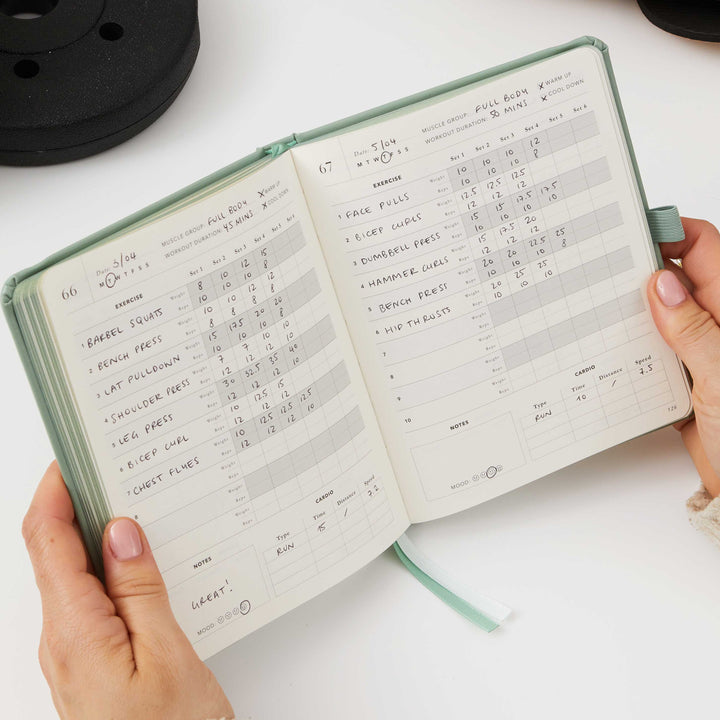 66
Date: 3/04
M T W T F S S
MUSCLE GROUP: FULL BODY
WORKOUT DURATION: 45 MINS
X WARM UP
X COOL DOWN
EXERCISE Set 1 Set 2 Set 3 Set 4 Set 5 Set 6
1 BARBEL SQUATS Weight 8 10 12 15
Reps 10 10 10 8
2 BENCH PRESS Weight 10 10 12 12
Reps 8 8 8 8
3 LAT PULLDOWN Weight 15 17.5 20 20
Reps
4 SHOULDER PRESS Weight 7 7 10 10
Reps 12 12 12 10
5 LEG PRESS Weight 30 32.5 35 40
Reps 12 12 12 10
6 BICEP CURL Weight 10 12.5 15
Reps 12 12 12
7 CHEST FLYES Weight 10 12.5 12.5 12.5
Reps 12 12 12 10
8 Weight
Reps
CARDIO
Type Time Distance Speed
RUN 15 / 7.2
NOTES
GREAT!
MOOD:
67
Date: 5/04
M T W T F S S
MUSCLE GROUP: FULL BODY
WORKOUT DURATION: 50 MINS
X WARM UP
X COOL DOWN
EXERCISE Set 1 Set 2 Set 3 Set 4 Set 5 Set 6
1 FACE PULLS Weight 10 10 10 12
Reps 10 10 10 8
2 BICEP CURLS Weight 12.5 12.5 12.5
Reps 12 12 12
3 DUMBBELL PRESS Weight 15 15 17.5 17.5
Reps 10 10 10 10
4 HAMMER CURLS Weight 15 17.5 20
Reps 12 12 12
5 BENCH PRESS Weight 20 20 22.5 25
Reps 10 10 10 8
6 HIP THRUSTS Weight 20 25 25
Reps 10 10 10
7 Weight
Reps
8 Weight
Reps
9 Weight
Reps
10 Weight
Reps
CARDIO
Type Time Distance Speed
RUN 10 / 7.5
NOTES
MOOD: